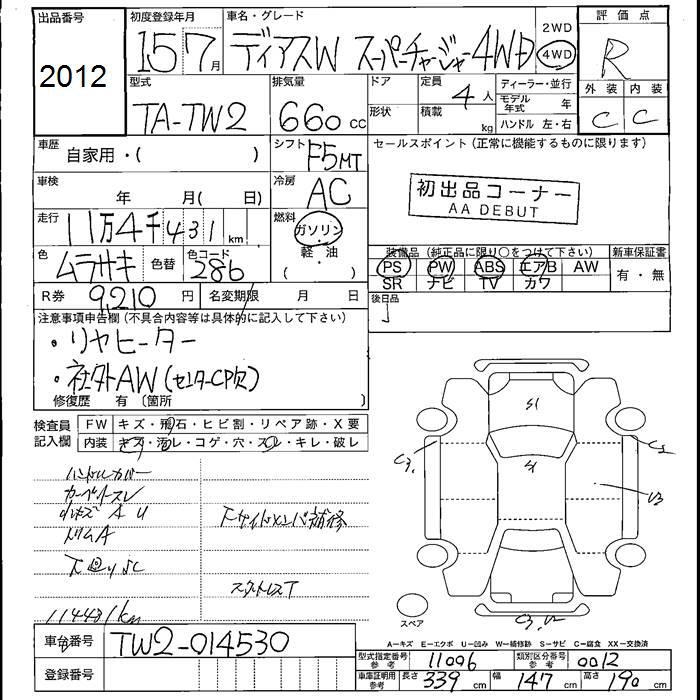 出品番号 初度登録年月 車名・グレード 2WD 評価点
2012 15 7月 ディアスW スーパーチャージャー4WD 4WD R
型式 排気量 ドア 定員 ディーラー・並行 外装 内装
TA-TW2 660 cc 形状 積載 4人 kg モデル年式 年 C C
ハンドル 左・右
車歴 自家用・( ) シフト F5MT セールスポイント (正常に機能するものに限ります)
車検 年 月( 日) 冷房 AC 初出品コーナー
AA DEBUT
走行 11万4千431 km 燃料 ガソリン・
軽・油
( ・ )
色 ムラサキ 色替 色コード 286 装備品 (純正品に限り○をつけて下さい) 新車保証書
PS PW ABS エアB AW 有・無
SR ナビ TV カワ
R券 9,210 円 名変期限 月 日 後日品
注意事項申告欄 (不具合内容等は具体的に記入して下さい)
・リヤヒーター
・社外AW (センターCP欠)
修復歴 有〔箇所 〕
検査員 FW キズ・飛石・ヒビ割・リペア跡・X要
記入欄 内装 キズ・汚レ・コゲ・穴・スレ・キレ・破レ
ハンドルカバー
カーペットスレ
小キズ A U
ドリムA
下サイドメンバ補修
スタットレスT
114431km
S1
C1
U3
スペア
A−キズ E−エクボ U−凹み W−補修跡 S−サビ C−腐食 XX−交換済
車台番号 TW2-014530 型式指定番号 参考 11096 類別区分番号 参考 0012
登録番号 車庫証明用 参考 長さ 339 cm 幅 147 cm 高さ 190 cm